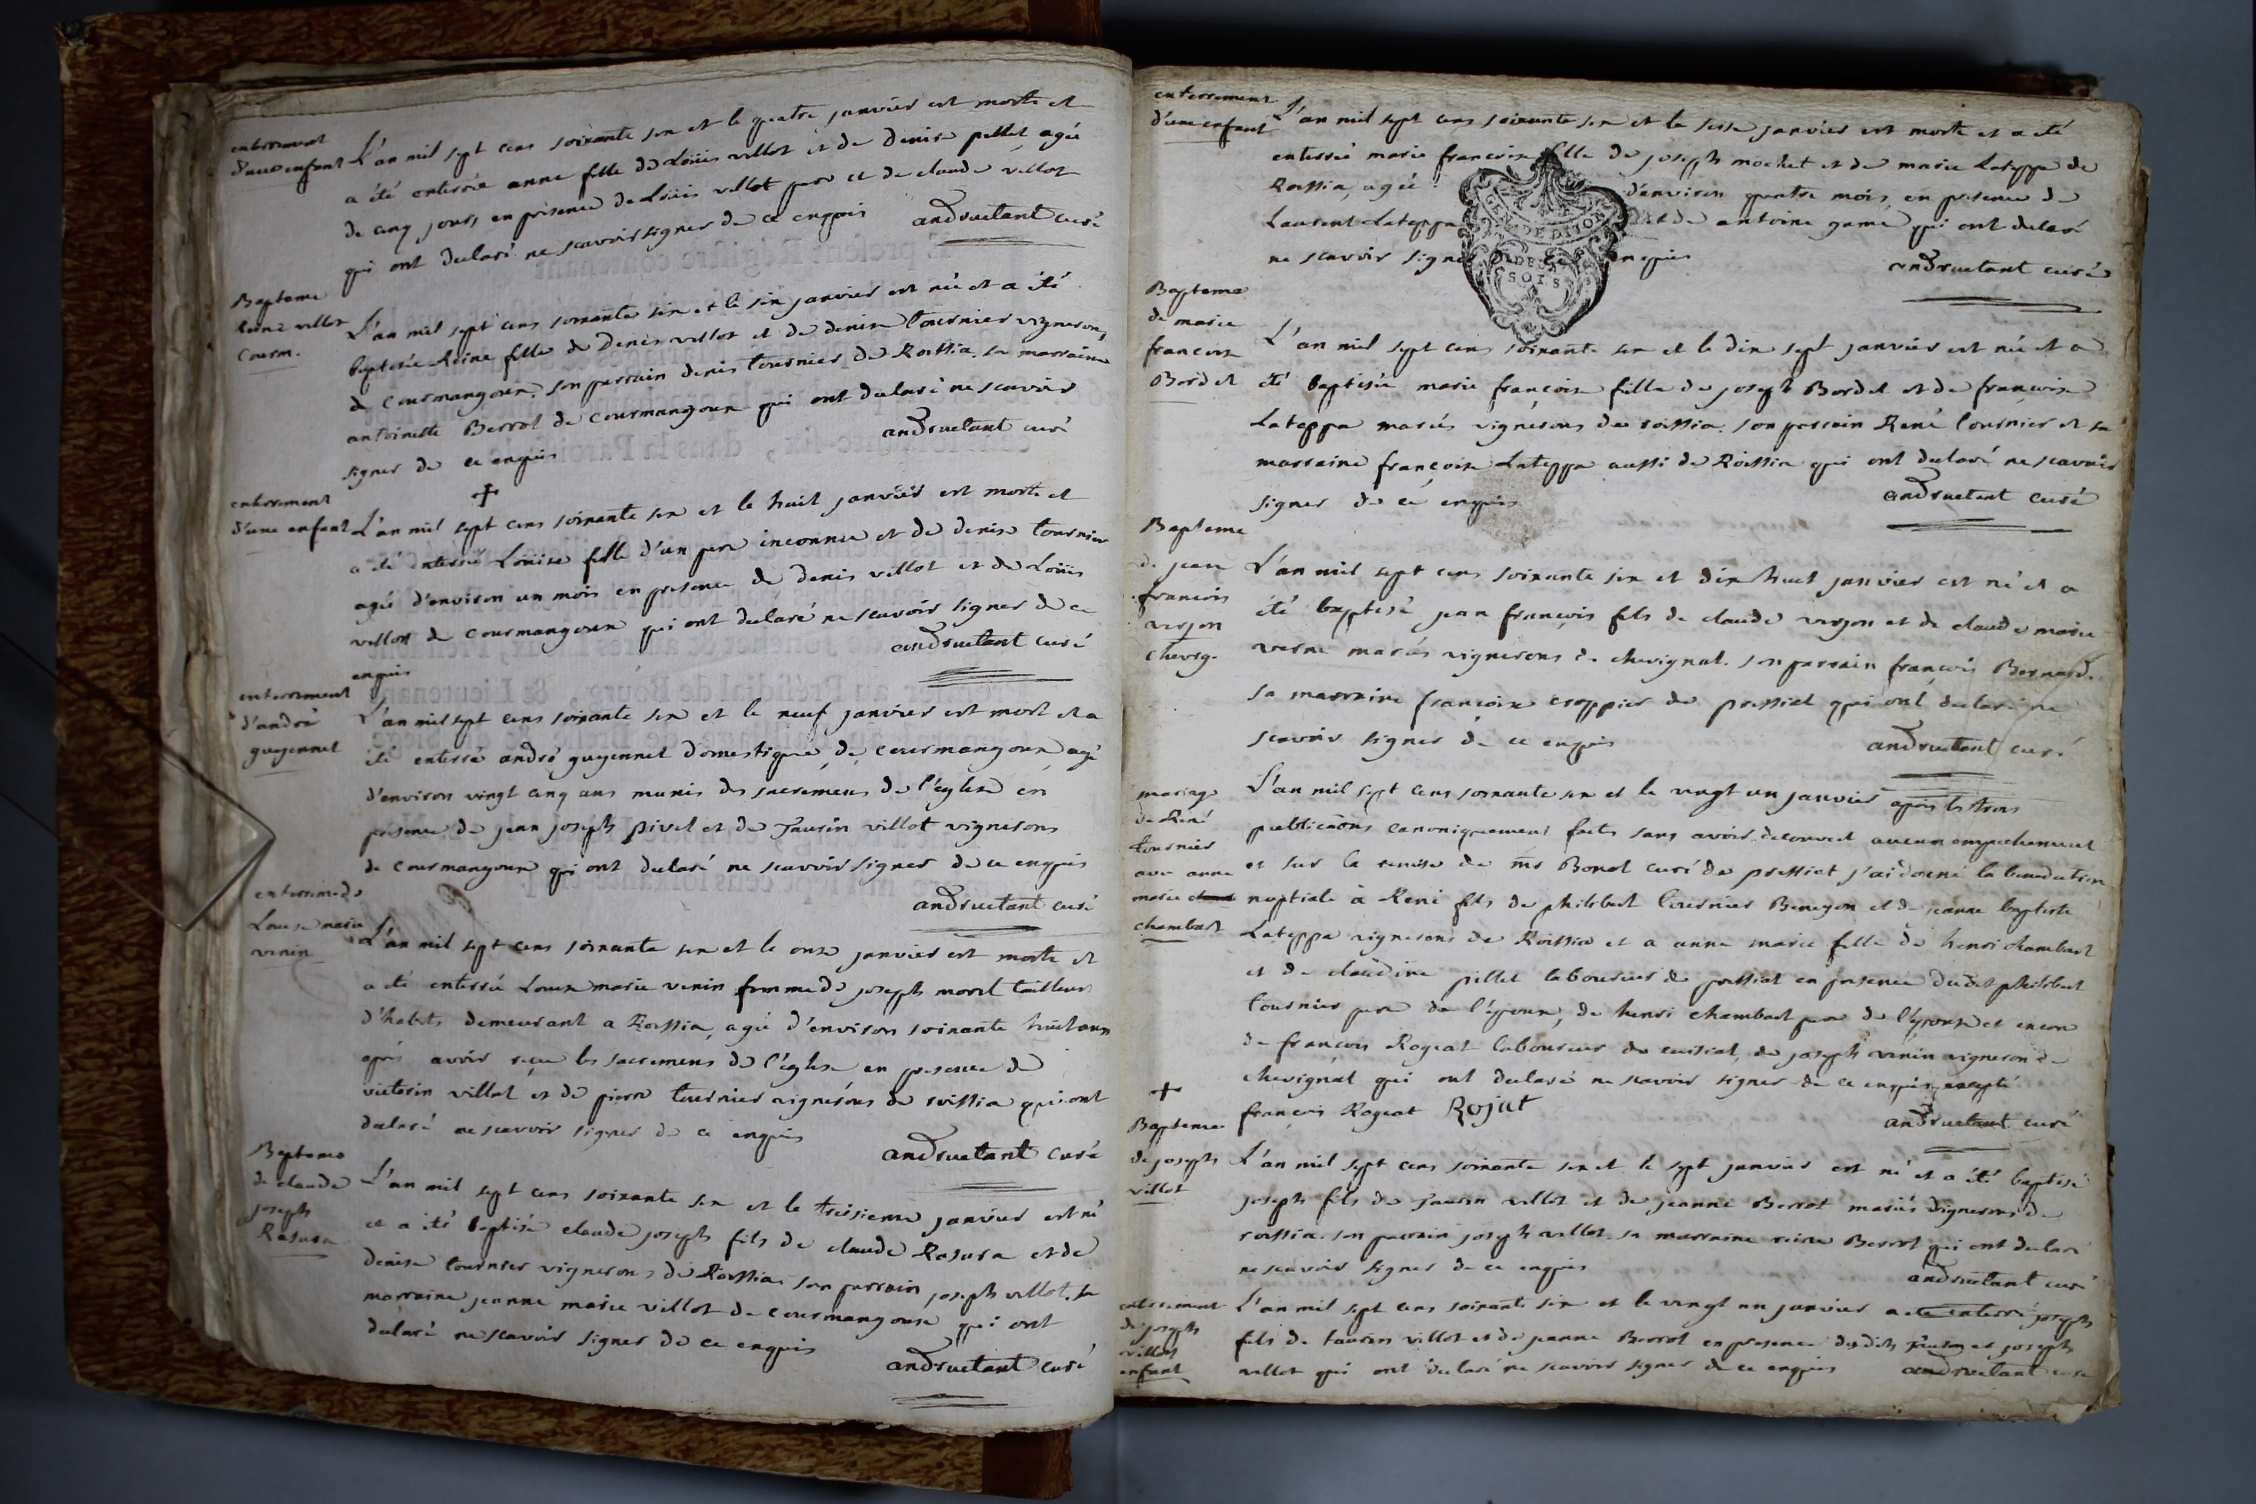 enterrement
d'une enfant
L'an mil sept cens soixante six et le quatre janvier est morte et
a été enterrée anne fille de Loüis villot et de denise pillet, agée
de cinq jours, en présence de Loüis villot pere et de claude villot
qui ont declaré ne scavoir signer de ce enquis
andruetant curé
Bapteme
Reine villot
Courm.
L'an mil sept cens soixante six et le six janvier est née et a été
baptisée Reine fille de Denis villot et de denise tournier vignerons
de Courmangoux, son parrain denis tournier de Roissia, sa marraine
antoinette Berrot de Courmangoux qui ont declaré ne scavoir
signer de ce enquis
andruetant curé
enterrement
d'une enfant
L'an mil sept cens soixante six et le huit janvier est morte et
a été enterrée Loüise fille d'un pere inconnu et de denise tournier
agée d'environ un mois en presence de denis villot et de Loüis
villot de Courmangoux qui ont declaré ne scavoir signer de ce
enquis
andruetant curé
enterrement
d'andré
guyennet
L'an mil sept cens soixante six et le neuf janvier est mort et a
été enterré andré guyennet domestique de Courmangoux agé
d'environ vingt cinq ans munis des sacremens de l'église en
présence de jean joseph pivet et de Taurin villot vignerons
de Courmangoux qui ont declaré ne scavoir signer de ce enquis
andruetant curé
Louise marie
venin
L'an mil sept cens soixante six et le onze janvier est morte et
a été enterrée Louise marie venin femme de joseph morel tailleur
d'habits demeurant a Roissia, agée d'environ soixante huit ans
après avoir reçu les sacremens de l'église en presence de
victorin villot et de pierre tournier vignerons de roissia qui ont
declaré ne scavoir signer de ce enquis
andruetant curé
Bapteme
de claude
joseph
Rasura
L'an mil sept cens soixante six et le treisieme janvier est né
et a été baptisé claude joseph fils de claude Rasura et de
denise tournier vignerons de Roissia, son parrain joseph villot, sa
marraine jeanne marie villot de Courmangoux qui ont
declaré ne scavoir signer de ce enquis
andruetant curé
enterrement
d'une enfant
L'an mil sept cens soixante six et le seise janvier est morte et a été
enterrée marie françoise fille de joseph mochet et de marie Lateppe de
Roissia, agée d'environ quatre mois, en presence de
Laurent Lateppe et de antoine gamé qui ont declaré
ne scavoir signer de ce enquis
GEN DE DIJON
SOLS
andruetant curé
Bapteme
de marie
francoise
Bordet
L'an mil sept cens soixante six et le dix sept janvier est née et a
été baptisée marie françoise fille de joseph Bordet et de françoise
Lateppe mariés vignerons de roissia, son parrain René tournier et sa
marraine françoise Lateppe aussi de Roissia qui ont declaré ne scavoir
signer de ce enquis
andruetant curé
Bapteme
de jean
francois
verjon
chevig.
L'an mil sept cens soixante six et dix huit janvier est né et a
été baptisé jean françois fils de claude verjon et de claude marie
verne mariés vignerons de chevignat. son parrain françois Bernard,
sa marraine françoise croppier de pressiat qui ont declaré ne
scavoir signer de ce enquis
andruetant curé
mariage
de René
tournier
avec anne
marie
chambard
L'an mil sept cens soixante six et le vingt un janvier après les trois
publications canoniquement faites sans avoir decouvert aucun empechement
et sur la remise de mr Bonot curé de pressiat j'ai donné la benediction
nuptiale à René fils de philibert tournier Benegon et de jeanne baptiste
Lateppe vignerons de Roissia et a anne marie fille de henri chambard
et de claudine pillet laboureur de pressiat en presence dudit philibert
tournier pere de l'époux, de henri chambard pere de l'épouse et encor
de françois Rogeat laboureur de cuisiat, de joseph venin vigneron de
chevignat qui ont declaré ne scavoir signer de ce enquis excepté
françois Rogeat Rojat
andruetant curé
Bapteme
de joseph
villot
L'an mil sept cens soixante six et le sept janvier est né et a été baptisé
joseph fils de Taurin villot et de jeanne Berrot mariés vignerons de
roissia. son parrain joseph villot sa marraine reine Berrot qui ont declaré
ne scavoir signer de ce enquis
andruetant curé
enterrement
de joseph
villot
enfant
L'an mil sept cens soixante six et le vingt un janvier a été enterré joseph
fils de taurin villot et de jeanne Berrot en presence desdits Taurin et joseph
villot qui ont declaré ne scavoir signer de ce enquis
andruetant curé